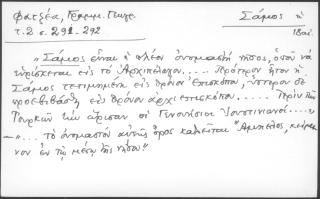 Φατζέα, Γραμμ. Γεωγρ. Σάμος ἡ
τ. 2 σ. 291-292 18αἰ.
"Σάμος εἶναι ἡ πλέον ὀνομαστὴ νῆσος, ὁποῦ νὰ
εὑρίσκεται εἰς τὸ Ἀρχιπέλαγον..... Πρότερον ἦτον ἡ
Σάμος τετιμημένη εἰς θρόνον Ἐπισκόπου, ὕστερον δὲ
προεβιβάσθη εἰς θρόνον ἀρχιεπισκόπου..... Πρὶν τῶν
Τουρκῶν τὴν ὥρισαν οἱ Γενουήσιοι Ἰουστινιανοί....,
— "... τὸ ὀνομαστὸν αὐτῆς ὄρος καλεῖται Ἄμπελος, κείμε
νον ἐν τῷ μέσῳ τῆς νήσου"